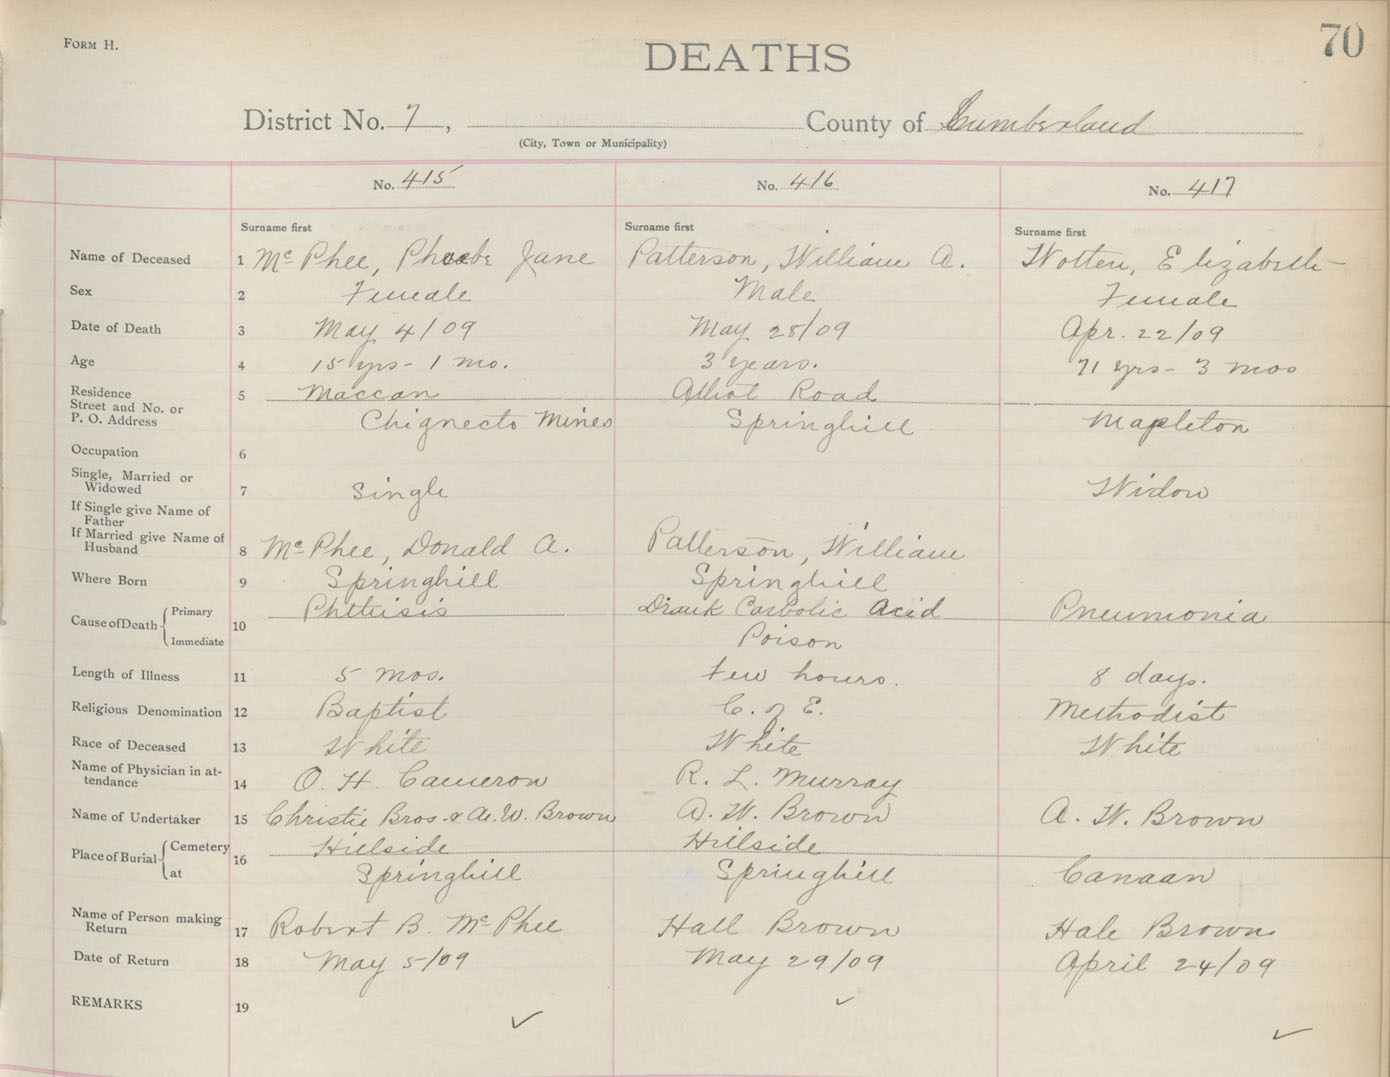 FORM H.
70
DEATHS
District No. 7, County of Cumberland
(City, Town or Municipality)
No. 415 No. 416 No. 417
Surname first Surname first Surname first
Name of Deceased 1 Mc Phee, Phoebe Jane Patterson, William A. Wotten, Elizabeth
Sex 2 Female Male Female
Date of Death 3 May 4/09 May 28/09 Apr. 22/09
Age 4 15 yrs - 1 mo. 3 years. 71 yrs - 3 mos
Residence 5 Maccan Road
Street and No. or
P. O. Address Chignecto Mines Springhill Mapleton
Occupation 6
Single, Married or
Widowed 7 Single Widow
If Single give Name of
Father
If Married give Name of
Husband 8 Mc Phee, Donald A. Patterson, William
Where Born 9 Springhill Springhill
Cause of Death 10 Primary Phthisis Drank Carbolic Acid Pneumonia
Immediate Poison
Length of Illness 11 5 mos. Few hours. 8 days.
Religious Denomination 12 Baptist C. of E. Methodist
Race of Deceased 13 White White White
Name of Physician in at-
tendance 14 O. H. Cameron R. L. Murray
Name of Undertaker 15 Christie Bros. & A. W. Brown A. W. Brown A. W. Brown
Place of Burial 16 Cemetery Hillside Hillside
at Springhill Springhill Canaan
Name of Person making
Return 17 Robert B. Mc Phee Hall Brown Hale Brown
Date of Return 18 May 5/09 May 29/09 April 24/09
REMARKS 19